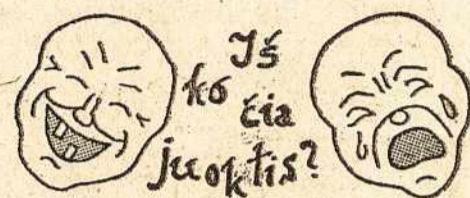 Iš
ko čia
juoktis?